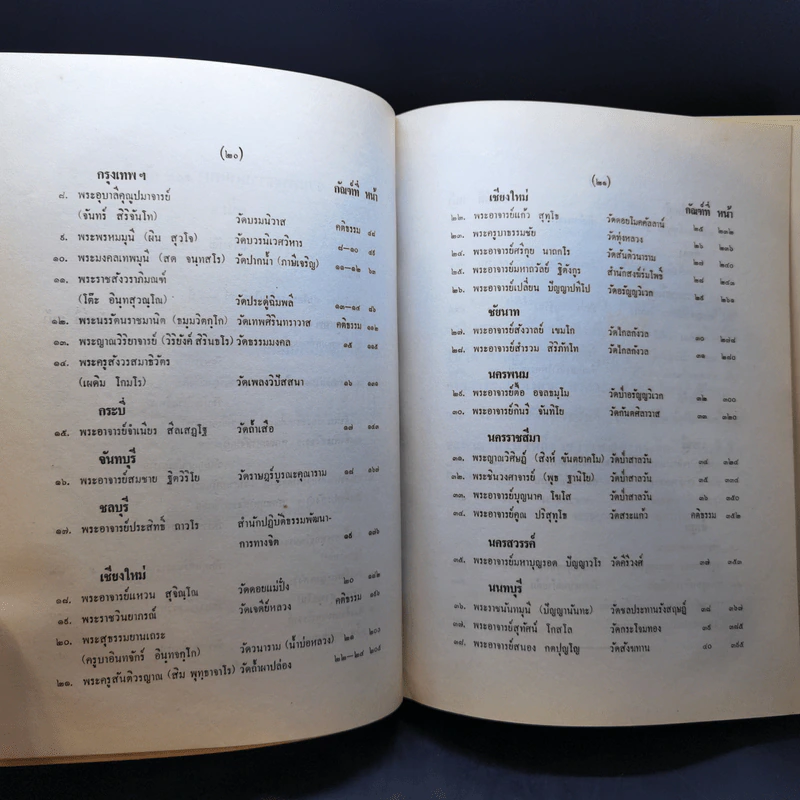 (๒๐)
กัณฑ์ที่ หน้า
กรุงเทพ ฯ
๘. พระอุบาลีคุณูปมาจารย์
(จันทร์ สิริจันโท) วัดบรมนิวาส คติธรรม ๔๔
๙. พระพรหมมุนี (ผิน สุวโจ) วัดบวรนิเวศวิหาร ๘-๑๐
๑๐. พระมงคลเทพมุนี (สด จนฺทสโร) วัดปากน้ำ (ภาษีเจริญ) ๑๑-๑๒
๑๑. พระราชสังวราภิมณฑ์
(โต๊ะ อินฺทสุวณฺโณ) วัดประดู่ฉิมพลี ๑๓-๑๔ ๘๖
๑๒. พระนรรัตนราชมานิต (ธมฺมวิตกฺโก) วัดเทพศิรินทราวาส คติธรรม ๑๑๒
๑๓. พระญาณวิริยาจารย์ (วิริยังค์ สิรินฺธโร) วัดธรรมมงคล ๑๕
๑๔. พระครูสังวรสมาธิวัตร
(เผดิม โกมโร) วัดเพลงวิปัสสนา ๑๖ ๑๓๑
กระบี่
๑๕. พระอาจารย์จำเนียร สีลเสฏฺโฐ วัดถ้ำเสือ ๑๗ ๑๔๑
จันทบุรี
๑๖. พระอาจารย์สมชาย ฐิตวิริโย วัดราษฎร์บูรณะคุณาราม ๑๘ ๑๖๗
ชลบุรี
๑๗. พระอาจารย์ประสิทธิ์ ถาวโร สำนักปฏิบัติธรรมพัฒนา-
การทางจิต ๑๙ ๑๗๖
เชียงใหม่
๑๘. พระอาจารย์แหวน สุจิณฺโณ วัดดอยแม่ปั๋ง ๒๐
๑๙. พระราชวินยาภรณ์ วัดเจดีย์หลวง คติธรรม
๒๐. พระสุธรรมยานเถระ
(ครูบาอินทจักร์ อินฺทจกฺโก) วัดวนาราม (น้ำบ่อหลวง) ๒๑ ๒๐๐
๒๑. พระครูสันติวรญาณ (สิม พุทฺธาจาโร) วัดถ้ำผาปล่อง ๒๒-๒๔ ๒๐๕
(๒๑)
กัณฑ์ที่ หน้า
เชียงใหม่
๒๒. พระอาจารย์แก้ว สุทฺโธ วัดดอยโมคคัลลาน์ ๒๕ ๒๓๒
๒๓. พระครูบาธรรมชัย วัดทุ่งหลวง ๒๖ ๒๓๖
๒๔. พระอาจารย์ศรีกุย นาถกโร วัดสันติวนาราม ๒๗ ๒๔๐
๒๕. พระอาจารย์มหาถวัลย์ ฐิตังกูร สำนักสงฆ์ร่มโพธิ์ ๒๘ ๒๔๓
๒๖. พระอาจารย์เปลี่ยน ปัญญาปทีโป วัดอรัญญวิเวก ๒๙ ๒๖๑
ชัยนาท
๒๗. พระอาจารย์สังวาลย์ เขมโก วัดไกลกังวล ๓๐ ๒๗๔
๒๘. พระอาจารย์สำรวม สิริภัทโท วัดไกลกังวล ๓๑ ๒๘๐
นครพนม
๒๙. พระอาจารย์ตื้อ อจลธมฺโม วัดป่าอรัญญวิเวก ๓๒ ๓๐๐
๓๐. พระอาจารย์กินรี จันทิโย วัดกันตศิลาวาส ๓๓ ๓๒๐
นครราชสีมา
๓๑. พระญาณวิศิษฏ์ (สิงห์ ขันตยาคโม) วัดป่าสาลวัน ๓๔ ๓๒๔
๓๒. พระชินวงศาจารย์ (พุธ ฐานิโย) วัดป่าสาลวัน ๓๕
๓๓. พระอาจารย์บุญนาค โฆโส วัดป่าสาลวัน ๓๖ ๓๕๐
๓๔. พระอาจารย์คูณ ปริสุทฺโธ วัดสระแก้ว คติธรรม ๓๕๒
นครสวรรค์
๓๕. พระอาจารย์มหาบุญรอด ปัญญาวโร วัดคีรีวงศ์ ๓๗ ๓๕๓
นนทบุรี
๓๖. พระราชนันทมุนี (ปัญญานันทะ) วัดชลประทานรังสฤษฎ์ ๓๘ ๓๖๗
๓๗. พระอาจารย์สุทัศน์ โกสโล วัดกระโจมทอง ๓๙ ๓๘๕
๓๘. พระอาจารย์สนอง กตปุญฺโญ วัดสังฆทาน ๔๐